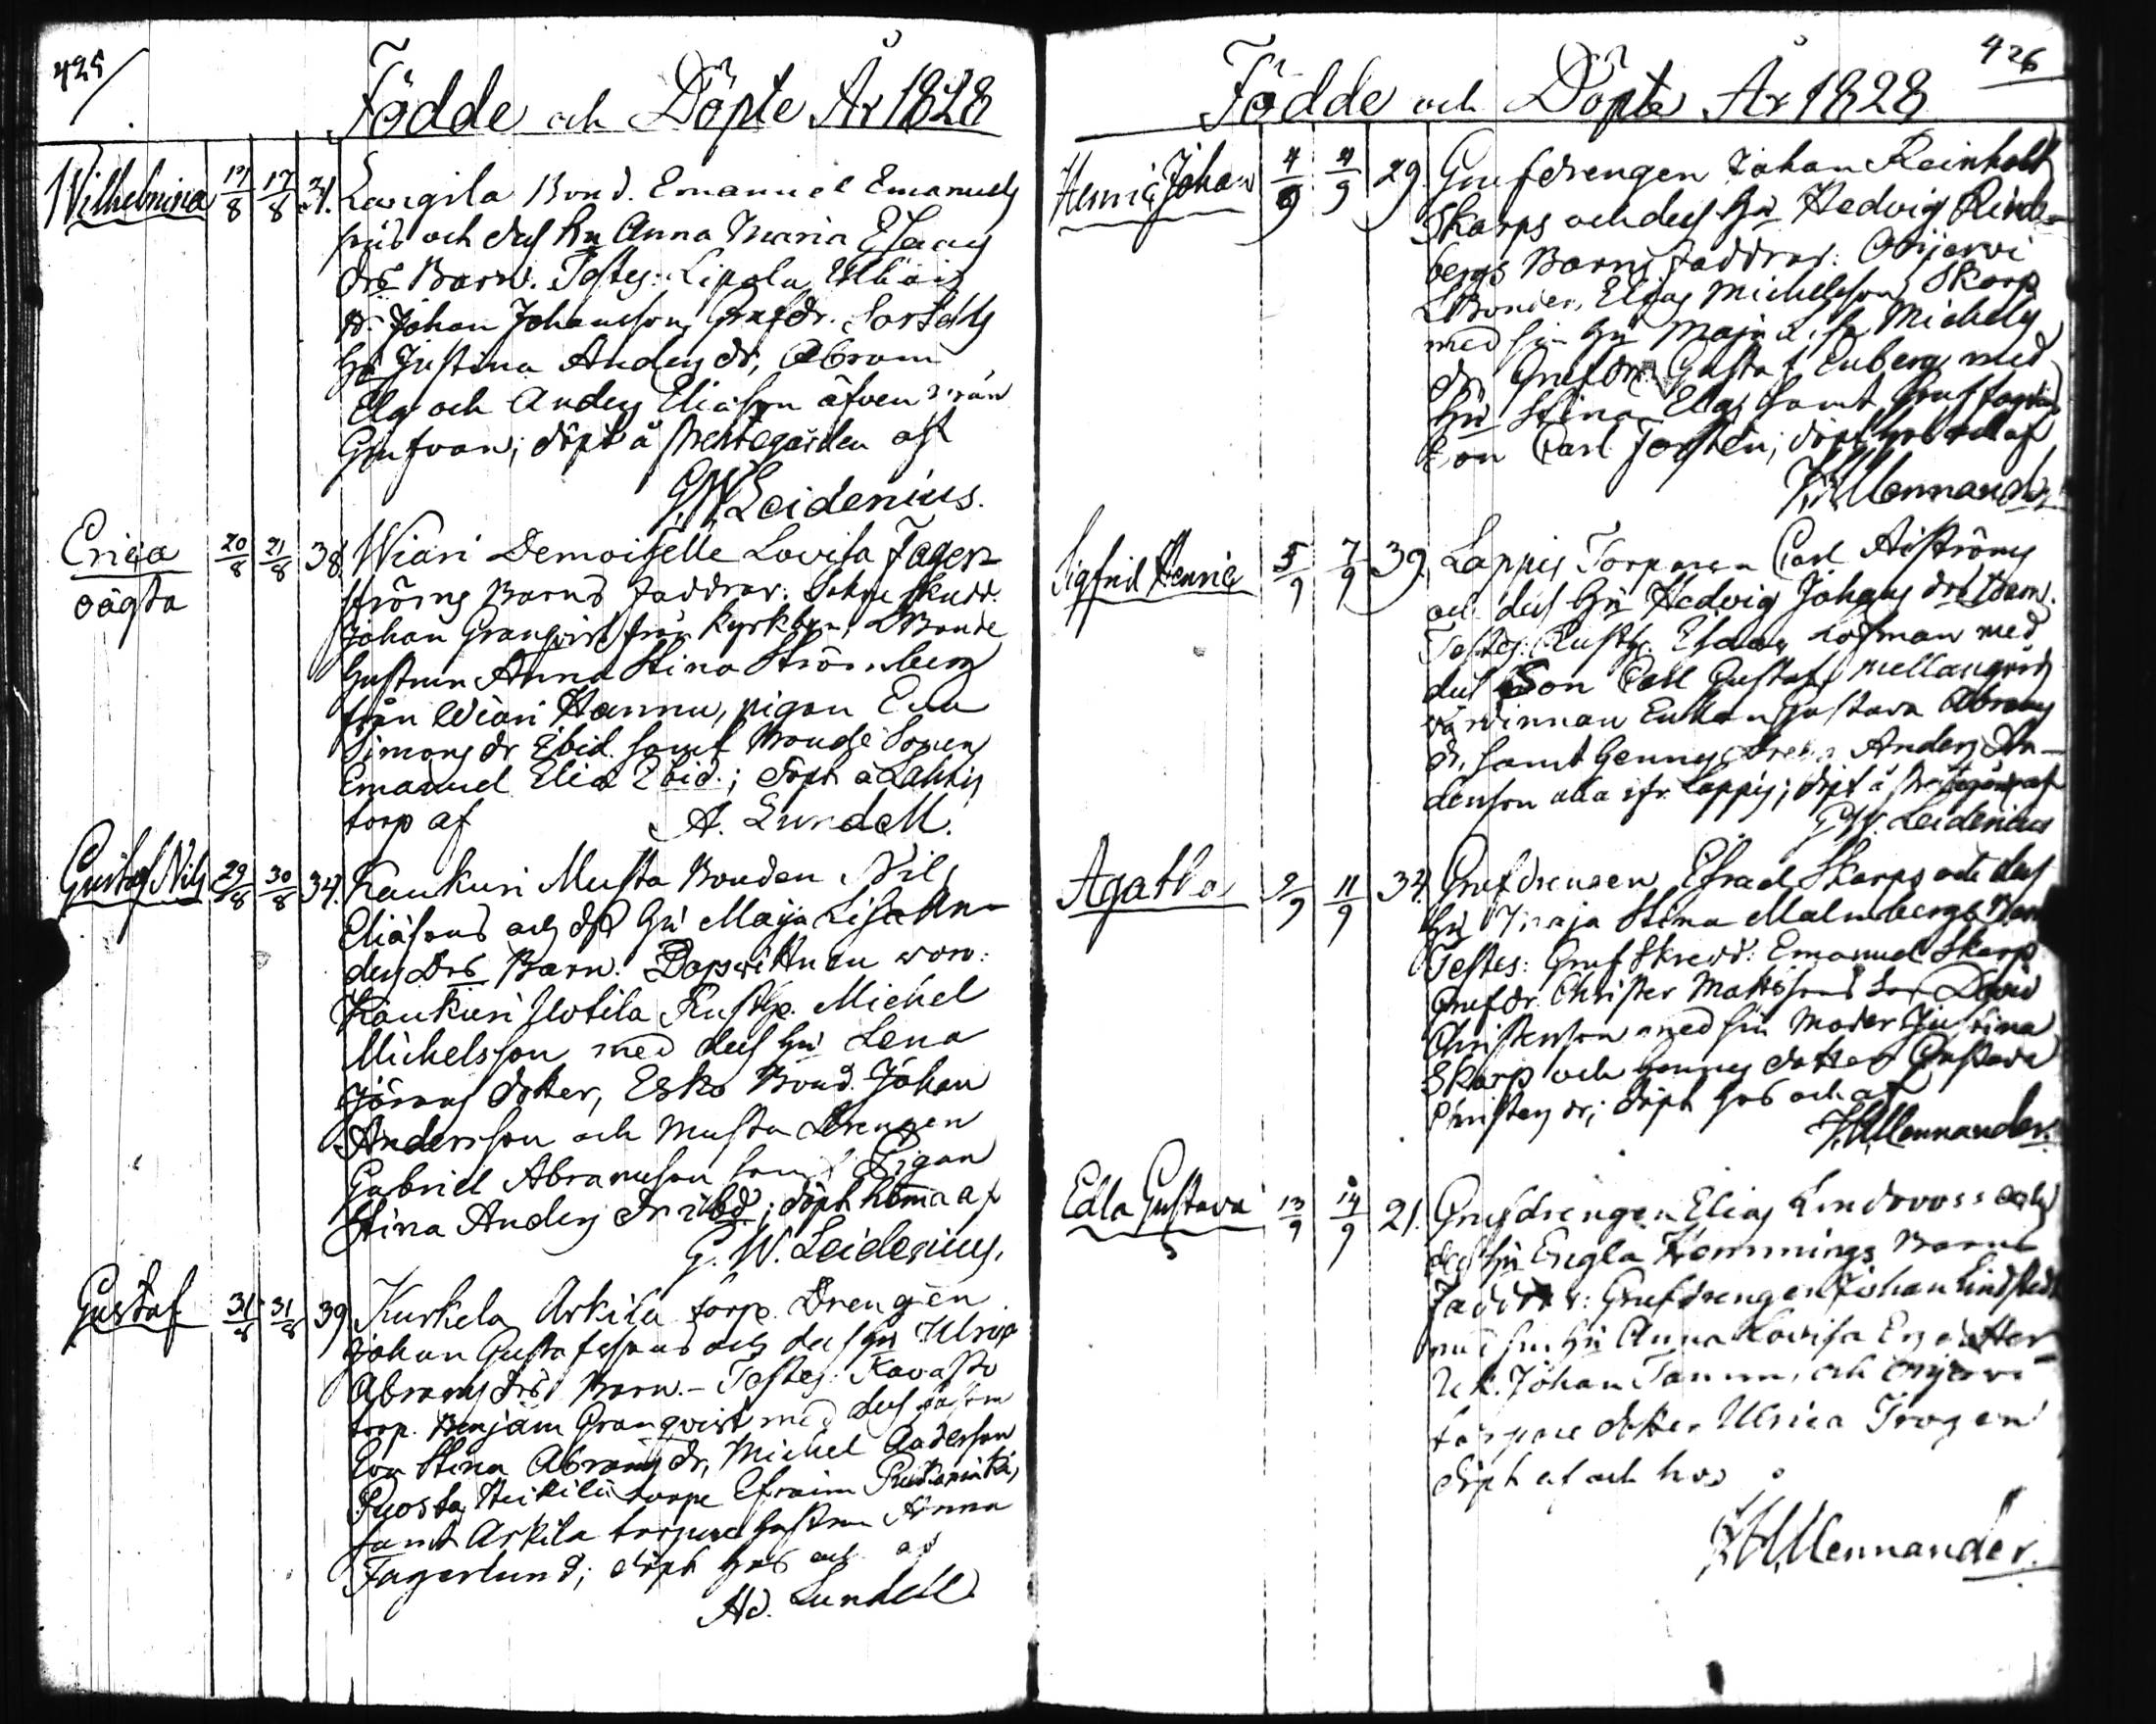 425
Födde och Döpte År 1828
Wilhelmina 17/8 17/8 31. Langila Bond. Emanuel Emanuels
sons och dess Hu Anna Maria Esaias
drs Barn. Testes: Lipola
Johan Johansson, Grufdr.
Hu Justina Anders dr, Abram
Elg och Anders Eliasson äfven från
Grufvan; döpt å Prestegården af
G.W. Leidenius.
Erica 20/8 21/8 38. Wiari Demoiselle Lovisa Fager-
oägta ströms Barns Faddrar: Sokne Skrädd.
Johan Granqvist från Kyrkbyn, Bonde
Hustrun Anna Stina Strömberg
från Wiari Hannu, pigan Eva
Simons dr Ibid. samt Bonde Sonen
Emanuel Elia Ibid.; döpt å Lahtis
torp af A. Lundell.
Gustaf Nils 29/8 30/8 34. Kaukuri Musta Bonden Nils
Eliäsons och dess Hu Maija Lisa An-
ders Drs Barn. Dopvittnen woro:
Kaukuri Ilotila Rusth. Michel
Michelsson med dess Hu Lena
Jörans dotter, Esko Bond. Johan
Andersson och Musta Drengen
Gabriel Abramsson samt Pigan
Stina Anders Dr ibd; döpt hemma af
G. W. Leidenius.
Gustaf 31/8 31/8 39. Kurkela Arkila torp. Drengen
Johan Gustafssons och dess Hu Ulrica
Abrams drs Barn. - Testes: Kavasto
torp. Benjam Granqvist med dess
Eva Stina Abrams dr, Michel Andersson
Puosta, Heikilä torpe Efraim
samt Arkila torpare hustrun Anna
Fagerlund; döpt hos och af
Ad. Lundell
426
Födde och Döpte År 1828
Henric Johan 4/9 4/9 29. Grufdrengen Johan Reinholt
Skarps och dess Hu Hedvig Rinde-
bergs Barns Faddrar: Orijervi
Bonden, Elias Michelsson Skarp
med sin Hu Maja Lisa Michels
dr, Grufdr. Gustaf Enberg med
Hu Stina Elg, samt Gruffogdens
Son Carl Forstén; döpt hos och af
Mennander
Sigfrid Henric 5/9 7/9 39. Lappis Torparen Carl Aiströms
och dess Hu Hedvig Johans drs Barn.
Testes: Rusth. Esaias Hofman med
dess Son Carl Gustaf, mellangårds
värdinnan Enkan Gustava Abrams
dr, samt hennes Dreng Anders An-
dersson alla ifr. Lappis; döpt å Prestegård af
G.W. Leidenius
Agatha 9/9 11/9 34. Grufdrengen Israel Skarps och dess
Hu Maja Stina Malmbergs Barn
Testes: Grufskrädd. Emanuel Skarp
Grufdr. Christer Mattssons Son David
Christersson med sin Moder Justina
Skarp och hennes dotter Gustava
Christers dr; döpt hos och af
Mennander.
Edla Gustava 13/9 14/9 21. Grufdrengen Elias Lindroos och
dess Hu Engla Hemmings Barns
Faddrar: Grufdrengen Johan Lindstedt
med sin Hu Anna Lovisa
Johan Tamm, och Orijervi
torpare dotter Ulrica Trogen
döpt af och hos
Mennander.